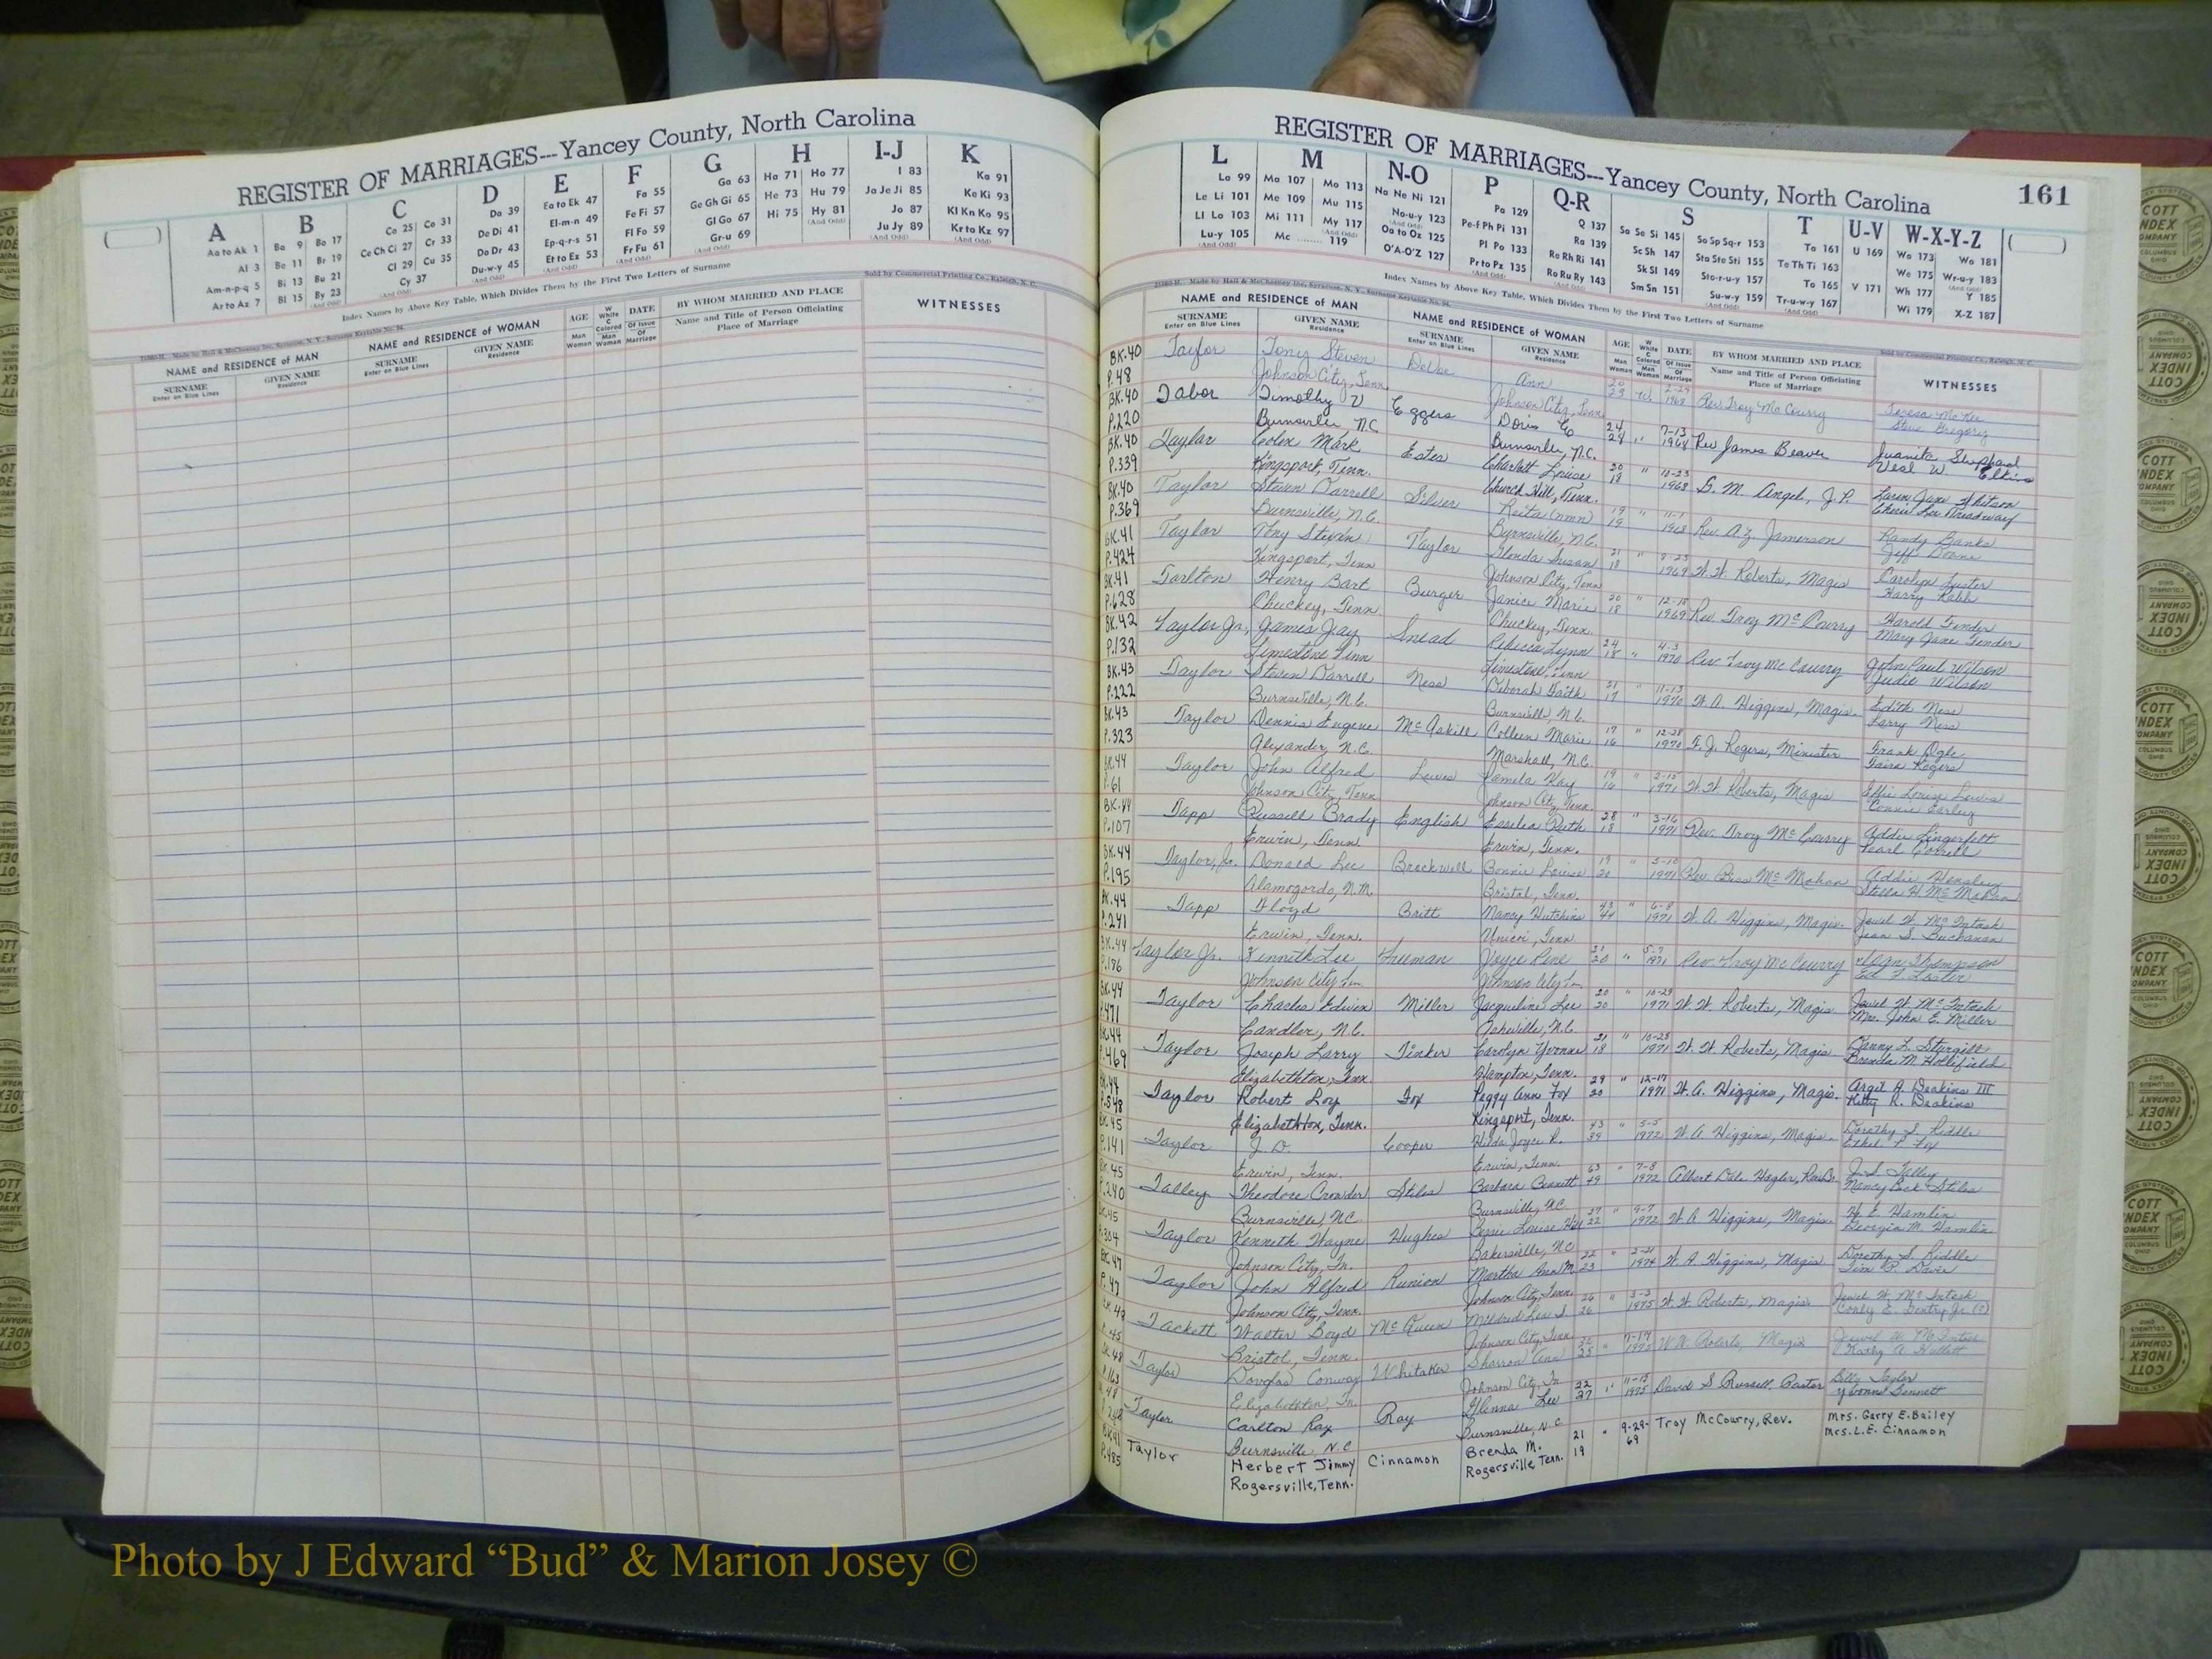 REGISTER OF MARRIAGES---Yancey County, North Carolina
A B C D E F G H I-J K
Aa to Ak 1 Ba 9 Bo 17 Ca 25 Co 31 Da 39 Ea to Ek 47 Fa 55 Ga 63 Ha 71 Ho 77 I 83 Ka 91
Al 3 Be 11 Br 19 Ce Ch Ci 27 Cr 33 De Di 41 El-m-n 49 Fe Fi 57 Ge Gh Gi 65 He 73 Hu 79 Ja Je Ji 85 Ke Ki 93
Am-n-p-q 5 Bi 13 Bu 21 Cl 29 Cu 35 Do Dr 43 Ep-q-r-s 51 Fl Fo 59 Gl Go 67 Hi 75 Hy 81 Jo 87 Kl Kn Ko 95
Ar to Az 7 Bl 15 By 23 Cy 37 Du-w-y 45 Et to Ez 53 Fr Fu 61 Gr-u 69 Ju Jy 89 Kr to Kz 97
Index Names by Above Key Table, Which Divides Them by the First Two Letters of Surname
Sold by Commercial Printing Co., Raleigh, N. C.
NAME and RESIDENCE of MAN
NAME and RESIDENCE of WOMAN
AGE
DATE
BY WHOM MARRIED AND PLACE
Name and Title of Person Officiating
Place of Marriage
WITNESSES
SURNAME
Enter on Blue Lines
GIVEN NAME
Residence
SURNAME
Enter on Blue Lines
GIVEN NAME
Residence
REGISTER OF MARRIAGES---Yancey County, North Carolina
161
L M N-O P Q-R S T U-V W-X-Y-Z
La 99 Ma 107 Mo 113 Na Ne Ni 121 Pa 129 Q 137 Sa Se Si 145 So Sp Sq-r 153 Ta 161 U 169 Wa 173 Wo 181
Le Li 101 Me 109 Mu 115 No-u-y 123 Pe-f Ph Pi 131 Ra 139 Sc Sh 147 Sta Ste Sti 155 Te Th Ti 163 We 175 Wr-u-y 183
Ll Lo 103 Mi 111 My 117 Oa to Oz 125 Pl Po 133 Re Rh Ri 141 Sk Sl 149 Sto-r-u-y 157 To 165 V 171 Wh 177 Y 185
Lu-y 105 Mc 119 O'A-O'Z 127 Pr to Pz 135 Ro Ru Ry 143 Sm Sn 151 Su-w-y 159 Tr-u-w-y 167 Wi 179 X-Z 187
Index Names by Above Key Table, Which Divides Them by the First Two Letters of Surname
NAME and RESIDENCE of MAN
NAME and RESIDENCE of WOMAN
AGE
DATE
BY WHOM MARRIED AND PLACE
Name and Title of Person Officiating
Place of Marriage
WITNESSES
SURNAME
Enter on Blue Lines
GIVEN NAME
Residence
SURNAME
Enter on Blue Lines
GIVEN NAME
Residence
BK.40 Taylor Tony Steven Ann 1968 Rev. Troy McCourry Teresa McKee
P.48 Johnson City, Tenn. Johnson City, Tenn. Steve Gregory
BK.40 Tabor Timothy V Eggers Doris E 24 7-13 1968 Rev James Beaver Juanita Shephard
P.220 Burnsville, N.C. Burnsville, N.C. 24 Veal W Elkins
BK.40 Taylor Mark Estes Charlott Louise 20 10-23 1968 G. M. Angel, J.P.
P.339 Kingsport, Tenn. Church Hill, Tenn. 18 Treadway
BK.40 Taylor Steven Darrell Silver Reita (nmn) 19 11-1 1968 Rev. A.Z. Jamerson Randy Banks
P.369 Burnsville, N.C. Burnsville, N.C. 19 Jeff Boone
BK.41 Taylor Tony Steven Taylor Glenda Susan 21 1969 W.W. Roberts, Magis Carolyn Luster
P.424 Kingsport, Tenn Johnson City, Tenn 18 Harry Rabb
BK.41 Tarlton Henry Bart Burger Janice Marie 20 12-18 1969 Rev. Troy McCourry Harold Tinder
P.628 Chuckey, Tenn Chuckey, Tenn. 18 Mary Jane Tinder
BK.42 Taylor Jr., James Jay Snead Rebecca Lynn 24 4-3 1970 Rev. Troy McCourry John Paul Wilson
P.132 Limestone Tenn Limestone, Tenn 18 Judie Wilson
BK.43 Taylor Steven Darrell Ness Deborah Faith 21 11-13 1970 W.A. Higgins, Magis. Edith Ness
P.222 Burnsville, N.C. Burnsville, N.C. 17 Larry Ness
BK.43 Taylor Dennis Eugene McAskill Colleen Marie 17 12-28 1970 F.J. Rogers, Minister Frank Ogle
P.323 Alexander, N.C. Marshall, N.C. 16 Rogers
BK.44 Taylor John Alfred Lewis Pamela Kay 19 2-15 1971 W.W. Roberts, Magis Effie Louise Lewis
P.61 Johnson City, Tenn Johnson City, Tenn. 16 Connie Earley
BK.44 Tapp Russell Brady English Ruth 28 3-16 1971 Rev. Troy McCourry Addie Lingerfelt
P.107 Erwin, Tenn Erwin, Tenn. 18 Pearl Correll
BK.44 Taylor, Jr. Donald Lee Brockwell Bonnie Louise 19 5-10 1971 Rev. Biss McMahan Addie Hensley
P.195 Alamogordo, N.M. Bristol, Tenn. 20 Stella H. McMahan
BK.44 Tapp Floyd Britt Nancy Hutchins 43 6-8 1971 W.A. Higgins, Magis. Jewel W. McIntosh
P.241 Erwin, Tenn. Unicoi, Tenn 44 Jean S. Buchanan
BK.44 Taylor Jr. Kenneth Lee Freeman Joyce Rene 21 5-7 1971 Rev. Troy McCourry Jean Thompson
P.186 Johnson City Tn. Johnson City Tn. 20
BK.44 Taylor Charles Edwin Miller Jacqueline Lee 20 10-29 1971 W.W. Roberts, Magis. Jewel W. McIntosh
P.471 Candler, N.C. Asheville, N.C. 20 Mrs. John E. Miller
BK.44 Taylor Joseph Larry Tinker Carolyn Yvonne 21 10-28 1971 W.W. Roberts, Magis Danny L. Sturgill
P.469 Elizabethton, Tenn. Hampton, Tenn. 18 Brenda M. Hollifield
BK.44 Taylor Robert Loy Fox Peggy Ann Fox 29 12-17 1971 W.A. Higgins, Magis. Argil A. Deakins III
P.548 Elizabethton, Tenn. Kingsport, Tenn. 20 Kitty R. Deakins
BK.45 Taylor J. D. Cooper Hilda Joyce R. 43 5-5 1972 W.A. Higgins, Magis. Dorothy S. Riddle
P.141 Erwin, Tenn. Erwin, Tenn. 39 Ethel P. Fox
BK.45 Talley Theodore Crowder Stiles Barbara Bennett 63 7-8 1972 Albert Dale Hagler, J.S. Talley
P.240 Burnsville, N.C. Burnsville, N.C. 49 Nancy Beck Stiles
BK.45 Taylor Kenneth Wayne Hughes Bessie Louise 27 9-7 1972 W.A. Higgins, Magis. H.E. Hamlin
P.304 Johnson City, Tn. Bakersville, N.C. 22 Georgia M. Hamlin
BK.47 Taylor John Alfred Runion Martha Ann M. 22 2-21 1974 W.A. Higgins, Magis Dorothy S. Riddle
P.47 Johnson City, Tenn. Johnson City, Tenn. 23 Tim R. Davis
BK.48 Tackett Walter Boyd McQueen Mildred Lea S. 26 3-3 1975 W.W. Roberts, Magis Jewel W. McIntosh
P.45 Bristol, Tenn. Johnson City, Tenn 26 Conley E. Gentry Jr.
BK.48 Taylor Douglas Conway Whitaker Sharron Ann 1975 W.W. Roberts, Magis Jewel W. McIntosh
P.163 Elizabethton, Tn. Johnson City, Tn 25 Kathy A. Hullett
48 Taylor Carlton Ray Ray Glenna Lee 22 11-15 1975 David S. Russell, Pastor Billy Taylor
Burnsville, N.C Burnsville, N.C. 27 Yvonne Bennett
BK41 Taylor Herbert Jimmy Cinnamon Brenda M. 21 " 9-29-69 Troy McCourry, Rev. Mrs. Garry E. Bailey
P.485 Rogersville, Tenn. Rogersville, Tenn. 19 Mrs. L.E. Cinnamon
Photo by J Edward “Bud” & Marion Josey ©